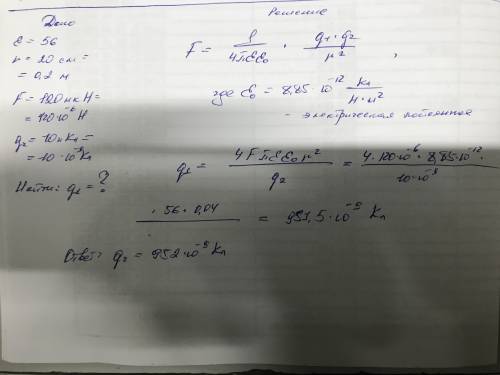 Дано
ε = 56
r = 20 см =
= 0,2 м
F = 120 мк Н =
= 120·10⁻⁶ Н
q₂ = 10 нКл =
= 10·10⁻⁹ Кл
Найти: q₁ = ?
Решение
F = 1 / 4πεε₀ · q₁·q₂ / r² ,
где ε₀ = 8,85·10⁻¹² Кл / Н·м²
- электрическая постоянная
q₁ = 4Fπεε₀r² / q₂ = 4·120·10⁻⁶·8,85·10⁻¹²· / 10·10⁻⁹
·56·0,04 = 951,5·10⁻⁹ Кл
Ответ: q₂ = 952·10⁻⁹ Кл